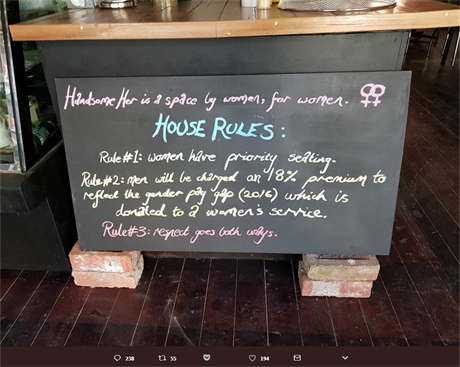 Handsome Her is a space by women, for women.
HOUSE RULES:
Rule#1: women have priority seating.
Rule#2: men will be charged an 18% premium to
reflect the gender pay gap (2016) which is
donated to a women's service.
Rule#3: respect goes both ways.
238 55 194